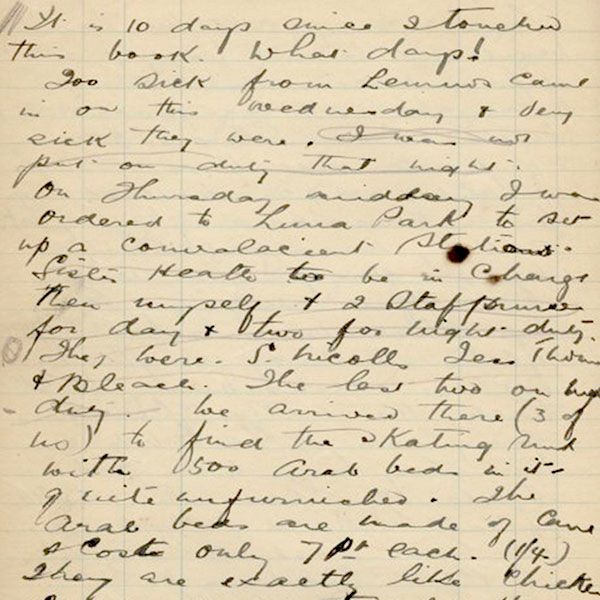 It is 10 days since I touched
this book. What days!
200 sick from Lemnos came
in on this Wednesday & very
sick they were. I was not
put on duty that night.
On Thursday midday I was
ordered to Luna Park to set
up a convalescent Station.
Sister Heath to be in Charge
then myself & 2 Staff nurses
for day & two for night duty.
They were. S. Nicolls Jess
& Bleach. The last two on night
duty. We arrived there (3 of
us) to find the Skating rink
with 500 Arab beds in it
quite unfurnished. The
Arab beds are made of Cane
& Cost only 7 pt each. (1/4)
They are exactly like Chicken